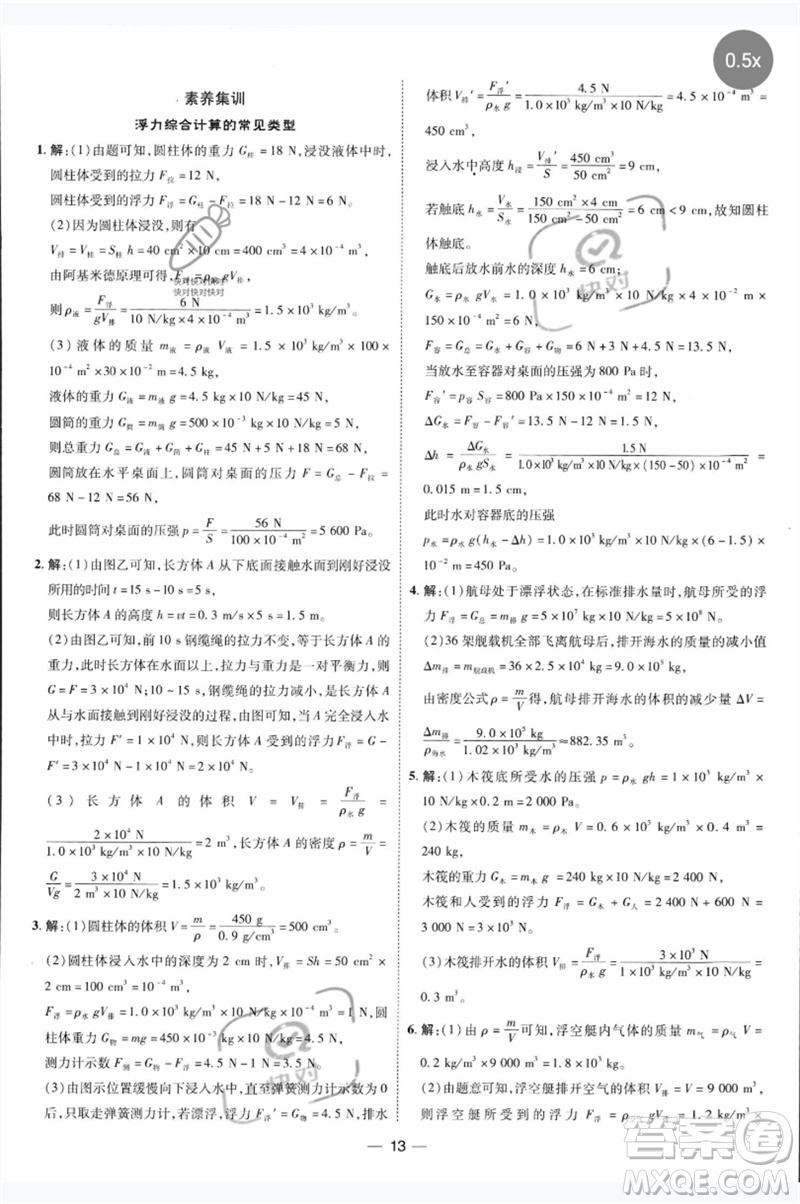 0.5x
素养集训
浮力综合计算的常见类型
1. 解:(1)由题可知，圆柱体的重力 G柱=18 N,浸没液体中时，
圆柱体受到的拉力 F拉=12 N,
圆柱体受到的浮力 F浮=G柱-F拉=18 N-12 N=6 N.
(2)因为圆柱体浸没，则有
V排=V柱=S柱 h=40 cm²×10 cm=400 cm³=4×10⁻⁴ m³,
由阿基米德原理可得，F浮=ρ液 gV排，
则 ρ液=F浮/gV排=6 N/10 N/kg×4×10⁻⁴ m³=1.5×10³ kg/m³.
(3)液体的质量 m液=ρ液V液=1.5×10³ kg/m³×100×
10⁻⁴ m²×30×10⁻² m=4.5 kg,
液体的重力 G液=m液 g=4.5 kg×10 N/kg=45 N,
圆筒的重力 G筒=m筒 g=500×10⁻³ kg×10 N/kg=5 N,
则总重力 G总=G液+G筒+G柱=45 N+5 N+18 N=68 N,
圆筒放在水平桌面上，圆筒对桌面的压力 F=G总-F拉=
68 N-12 N=56 N,
此时圆筒对桌面的压强 p=F/S=56 N/100×10⁻⁴ m²=5 600 Pa.
2. 解:(1)由图乙可知，长方体 A 从下底面接触水面到刚好浸没
所用的时间 t=15 s-10 s=5 s,
则长方体 A 的高度 h=vt=0.3 m/s×5 s=1.5 m.
(2)由图乙可知，前 10 s 钢缆绳的拉力不变，等于长方体 A 的
重力，此时长方体在水面以上，拉力与重力是一对平衡力，则
G=F=3×10⁴ N;10~15 s,钢缆绳的拉力减小，是长方体
A 从与水面接触到刚好浸没的过程，由图可知，当 A 完全浸入水
中时，拉力 F′=1×10⁴ N,则长方体 A 受到的浮力 F浮=G-
F′=3×10⁴ N-1×10⁴ N=2×10⁴ N.
(3)长方体 A 的体积 V=V排=F浮/ρ水 g=
2×10⁴ N/1.0×10³ kg/m³×10 N/kg=2 m³,长方体 A 的密度 ρ=m/V=
G/Vg=3×10⁴ N/2 m³×10 N/kg=1.5×10³ kg/m³.
3. 解:(1)圆柱体的体积 V=m/ρ=450 g/0.9 g/cm³=500 cm³.
(2)圆柱体浸入水中的深度为 2 cm 时，V排=Sh=50 cm²×
2 cm=100 cm³,
F浮=ρ水 gV排=1.0×10³ kg/m³×10 N/kg×100×10⁻⁶ m³=1 N,圆
柱体重力 G物=mg=450×10⁻³ kg×10 N/kg=4.5 N,
测力计示数 F测=G物-F浮=4.5 N-1 N=3.5 N.
(3)由图示位置缓慢向下浸入水中，直至弹簧测力计示数为 0
后，只取走弹簧测力计，若漂浮，浮力 F浮′=G物=4.5 N,排水
体积 V排′=F浮′/ρ水 g=4.5 N/1.0×10³ kg/m³×10 N/kg=4.5×10⁻⁴ m³=
450 cm³,
浸入水中高度 h浸=V排′/S=450 cm³/50 cm²=9 cm,
若触底 h水=V水/S水=150 cm²×4 cm/150 cm²-50 cm²=6 cm<9 cm,故知圆柱
体触底.
触底后放水前水的深度 h水=6 cm;
G水=m水 g=ρ水 gV水=1.0×10³ kg/m³×10 N/kg×150×4×
10⁻⁶ m³=6 N,
F容=G总=G水+G容+G物=6 N+3 N+4.5 N=13.5 N,
当放水至容器对桌面的压强为 800 Pa 时，
F容′=p容 S容=800 Pa×150×10⁻⁴ m²=12 N,
ΔG水=F容-F容′=13.5 N-12 N=1.5 N,
Δh=ΔG水/ρ水 gS水=1.5 N/1.0×10³ kg/m³×10 N/kg×(150-50)×10⁻⁴ m²=
0.015 m=1.5 cm,
此时水对容器底的压强
p水=ρ水 g(h水-Δh)=1.0×10³ kg/m³×10 N/kg×(6-1.5)×
10⁻² m=450 Pa.
4. 解:(1)航母处于漂浮状态，在标准排水量时，航母所受的浮
力 F浮=G总=m总 g=5×10⁷ kg×10 N/kg=5×10⁸ N.
(2)36 架舰载机全部飞离航母后，排开海水的质量的减小值
Δm排=m舰载机=36×2.5×10⁴ kg=9.0×10⁵ kg,
由密度公式 ρ=m/V得，航母排开海水的体积的减少量 ΔV=
Δm排/ρ海水=9.0×10⁵ kg/1.02×10³ kg/m³≈882.35 m³.
5. 解:(1)木筏底所受水的压强 p=ρ水 gh=1×10³ kg/m³×
10 N/kg×0.2 m=2 000 Pa.
(2)木筏的质量 m木=ρ木 V=0.6×10³ kg/m³×0.4 m³=
240 kg,
木筏的重力 G木=m木 g=240 kg×10 N/kg=2 400 N,
木筏和人受到的浮力 F浮=G木+G人=2 400 N+600 N=
3 000 N=3×10³ N.
(3)木筏排开水的体积 V排=F浮/ρ水 g=3×10³ N/1×10³ kg/m³×10 N/kg=
0.3 m³.
6. 解:(1)由 ρ=m/V可知，浮空艇内气体的质量 m气=ρ气 V=
0.2 kg/m³×9 000 m³=1.8×10³ kg.
(2)由题意可知，浮空艇排开空气的体积 V排=V=9 000 m³,
则浮空艇所受的浮力 F浮=ρ空气 gV排=1.2 kg/m³×
13
快对
快对快对快对
快对快对快对
快对
答案圈
MXQE.COM